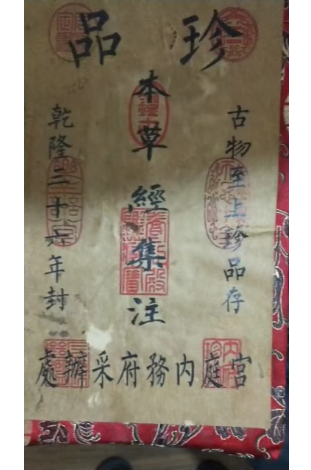 珍品
古物至上珍品存
本草經集注
乾隆二十六年封
宮庭內務府采辦處